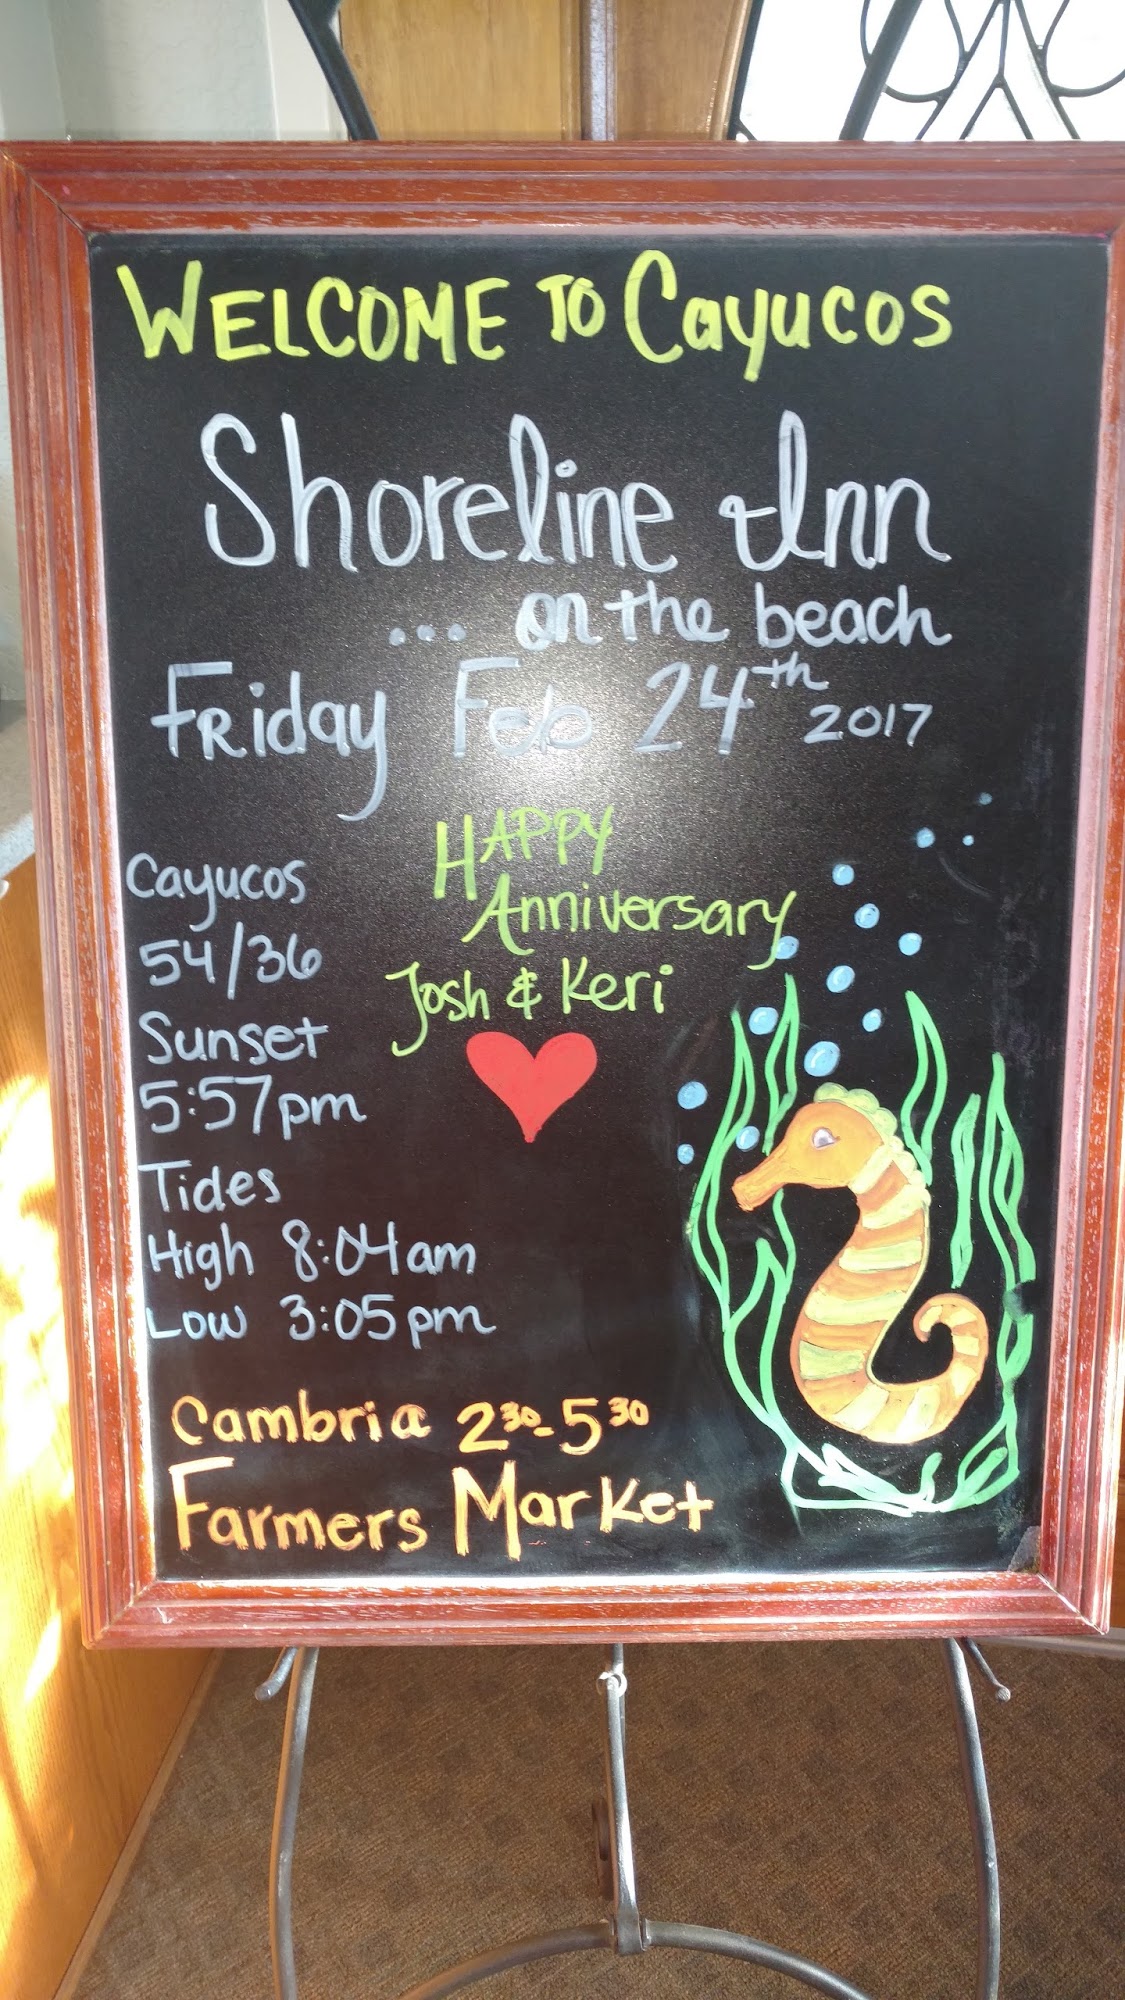 WELCOME TO Cayucos
Shoreline Inn
... on the beach
Friday Feb 24th 2017
Happy
Anniversary
Josh & Keri
Cayucos
54/36
Sunset
5:57pm
Tides
High 8:04am
Low 3:05pm
Cambria 2³⁰-5³⁰
Farmers Market